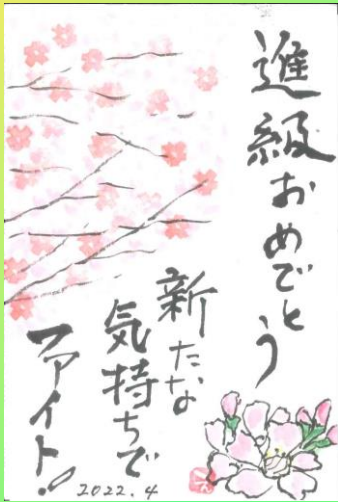 進級おめでとう
新たな
気持ちで
ファイト!
2022.4